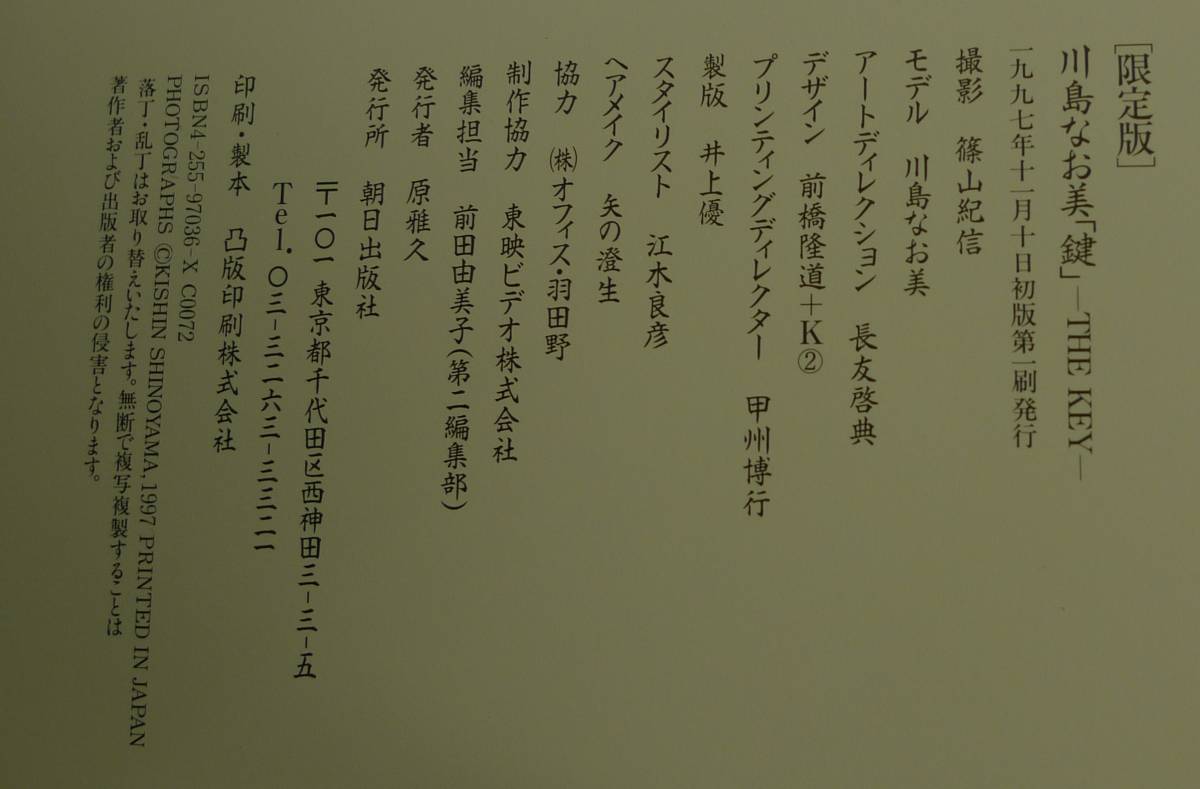 ［限定版］
川島なお美「鍵」―THE KEY―
一九九七年十一月十日初版第一刷発行
撮影　篠山紀信
モデル　川島なお美
アートディレクション　長友啓典
デザイン　前橋隆道＋K②
プリンティングディレクター　甲州博行
製版　井上優
スタイリスト　江木良彦
ヘアメイク　矢の澄生
協力　㈱オフィス・羽田野
制作協力　東映ビデオ株式会社
編集担当　前田由美子（第二編集部）
発行者　原雅久
発行所　朝日出版社
〒一〇一　東京都千代田区西神田三−三−五
Tel.〇三−三二六三−三三二一
印刷・製本　凸版印刷株式会社
ISBN4-255-97036-X C0072
PHOTOGRAPHS ©KISHIN SHINOYAMA, 1997 PRINTED IN JAPAN
落丁・乱丁はお取り替えいたします。無断で複写複製することは
著作者および出版者の権利の侵害となります。